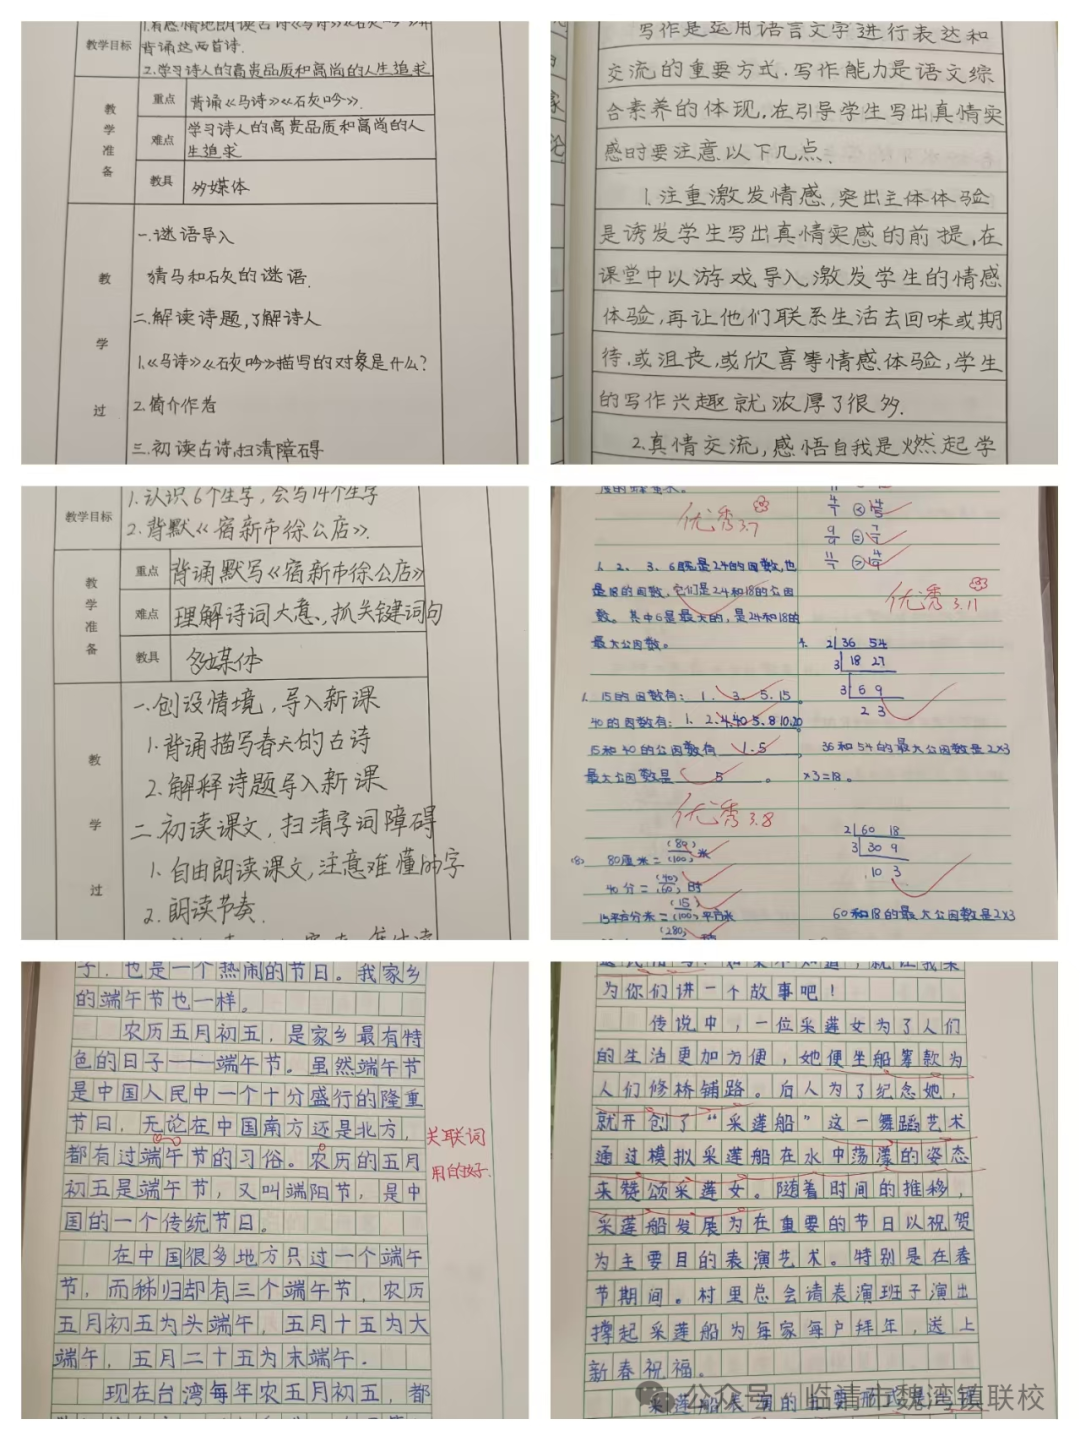 1.有感情地朗读古诗《马诗》《石灰吟》并
教学目标
背诵这两首诗.
2.学习诗人的高贵品质和高尚的人生追求
教学准备
重点
背诵《马诗》《石灰吟》.
难点
学习诗人的高贵品质和高尚的人
生追求
教具
多媒体
教学过
一.谜语导入
猜马和石灰的谜语.
二.解读诗题,了解诗人
1.《马诗》《石灰吟》描写的对象是什么?
2.简介作者
三.初读古诗,扫清障碍
写作是运用语言文字进行表达和
交流的重要方式.写作能力是语文综
合素养的体现,在引导学生写出真情实
感时要注意以下几点.
1.注重激发情感,突出主体体验
是诱发学生写出真情实感的前提,在
课堂中以游戏导入激发学生的情感
体验,再让他们联系生活去回味或期
待,或沮丧,或欣喜等情感体验,学生
的写作兴趣就浓厚了很多.
2.真情交流,感悟自我是燃起学
1.认识6个生字,会写14个生字
教学目标
2.背默《宿新市徐公店》.
教学准备
重点
背诵默写《宿新市徐公店》
难点
理解诗词大意、抓关键词句
教具
多媒体
教学过
一.创设情境,导入新课
1.背诵描写春天的古诗
2.解释诗题导入新课
二.初读课文,扫清字词障碍
1.自由朗读课文,注意难懂的字
2.朗读节奏.
优秀 3.7
1、2、3、6既是24的因数,也
是18的因数,它们是24和18的公因
数。其中6是最大的,是24和18的
最大公因数。
1. 15的因数有: 1、3、5、15 。
40的因数有: 1、2、4、40、5、8、10、20
15和40的公因数有 1、5 ,
最大公因数是 5 。
优秀 3.8
(8) 80厘米=(80)/(100)米
40分=(40)/(60)时
15平方分米=(15)/(100)平方米
(280)
优秀 3.11
4. 2 36 54
3 18 27
3 6 9
2 3
36和54的最大公因数是2×3
×3=18。
2 60 18
3 30 9
10 3
60和18的最大公因数是2×3
子,也是一个热闹的节日。我家乡
的端午节也一样。
农历五月初五,是家乡最有特
色的日子——端午节。虽然端午节
是中国人民中一个十分盛行的隆重
节日,无论在中国南方还是北方,
都有过端午节的习俗。农历的五月
初五是端午节,又叫端阳节,是中
国的一个传统节日。
关联词
用的好.
在中国很多地方只过一个端午
节,而秭归却有三个端午节,农历
五月初五为头端午,五月十五为大
端午,五月二十五为末端午.
现在台湾每年农五月初五,都
为你们讲一个故事吧!
传说中,一位采莲女为了人们
的生活更加方便,她便坐船筹款为
人们修桥铺路。后人为了纪念她,
就开创了“采莲船”这一舞蹈艺术
通过模拟采莲船在水中荡漾的姿态
来赞颂采莲女。随着时间的推移,
采莲船发展为在重要的节日以祝贺
为主要目的表演艺术。特别是在春
节期间。村里总会请表演班子演出
撑起采莲船为每家每户拜年,送上
新春祝福。
采莲船表演的主要形式是由一
公众号·临清市魏湾镇联校